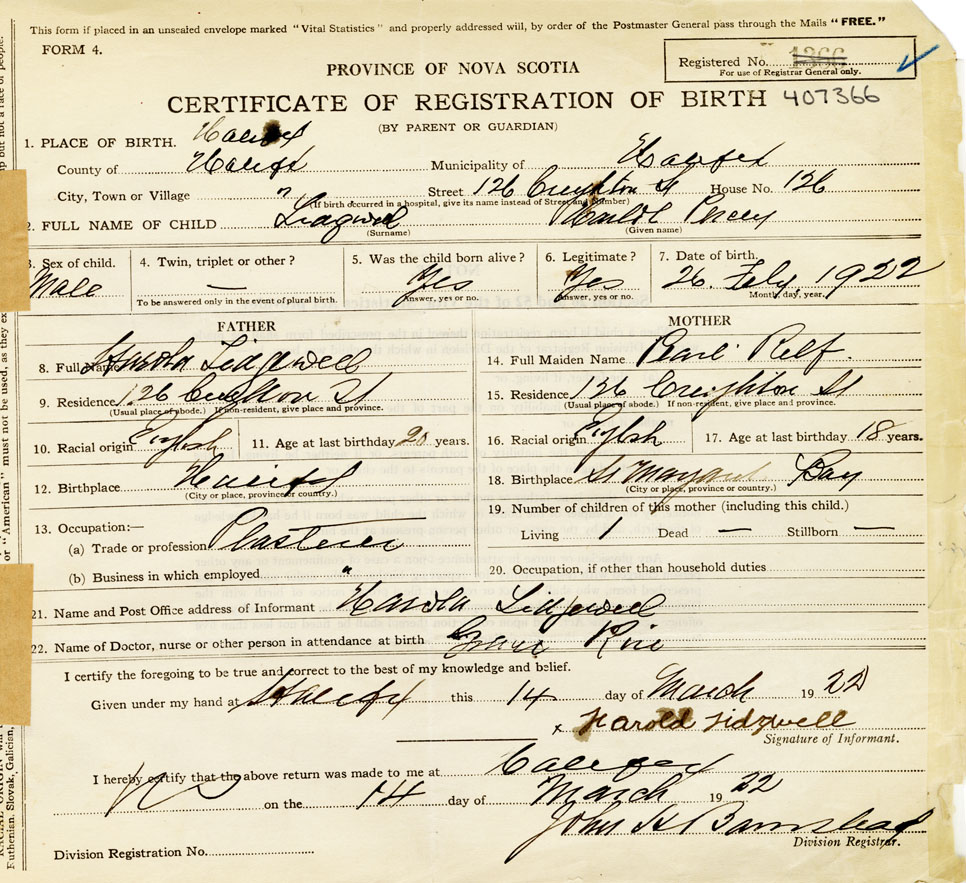 This form if placed in an unsealed envelope marked "Vital Statistics" and properly addressed will, by order of the Postmaster General pass through the Mails "FREE."
FORM 4.
Registered No. 1366
For use of Registrar General only.
PROVINCE OF NOVA SCOTIA
CERTIFICATE OF REGISTRATION OF BIRTH 407366
(BY PARENT OR GUARDIAN)
1. PLACE OF BIRTH. Halifax
County of Halifax Municipality of Halifax
City, Town or Village " Street 126 Creighton St House No. 126
(If birth occurred in a hospital, give its name instead of Street and number)
2. FULL NAME OF CHILD Lidgwell Harold
(Surname) (Given name)
3. Sex of child. 4. Twin, triplet or other? 5. Was the child born alive? 6. Legitimate? 7. Date of birth.
Male — Yes Yes 26 Feby 1922
To be answered only in the event of plural birth. Answer, yes or no. Answer, yes or no. Month, day, year.
FATHER MOTHER
8. Full Name Harold Lidgwell 14. Full Maiden Name Pearl Relf.
9. Residence 126 Creighton St 15. Residence 126 Creighton St
(Usual place of abode.) If non-resident, give place and province. (Usual place of abode.) If non-resident, give place and province.
10. Racial origin English 11. Age at last birthday 20 years. 16. Racial origin English 17. Age at last birthday 18 years.
12. Birthplace Halifax 18. Birthplace St Margaret Bay
(City or place, province or country.) (City or place, province or country.)
13. Occupation:— 19. Number of children of this mother (including this child.)
(a) Trade or profession Plasterer Living 1 Dead — Stillborn —
(b) Business in which employed " 20. Occupation, if other than household duties
21. Name and Post Office address of Informant Harold Lidgwell
22. Name of Doctor, nurse or other person in attendance at birth Grace
I certify the foregoing to be true and correct to the best of my knowledge and belief.
Given under my hand at Halifax this 14 day of March 1922
x Harold Lidgwell
Signature of Informant.
I hereby certify that the above return was made to me at Halifax
N S on the 14 day of March 1922
John H Barnstead
Division Registrar.
Division Registration No.